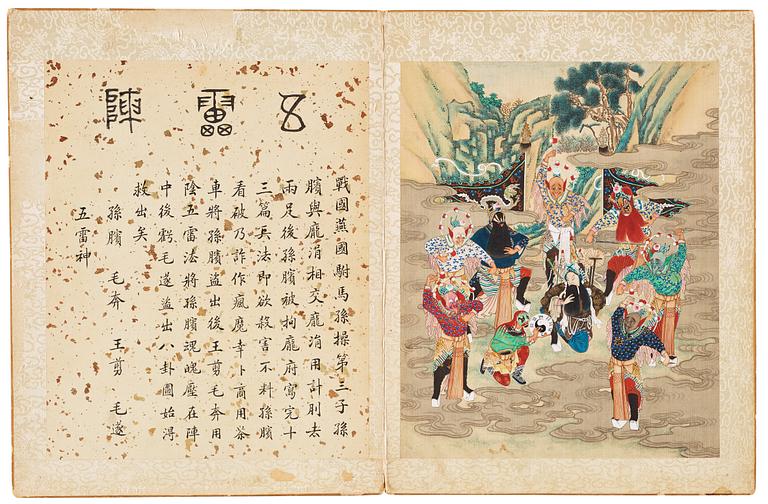 五雷陣
戰國燕國駙馬孫操第三子孫
臏與龐涓相交龐涓用計刖去
兩足後孫臏被拘龐府寫完十
三篇兵法即欲殺害不料孫臏
看破乃詐作瘋魔幸卜商用茶
車將孫臏盜出後王剪毛奔用
陰五雷法將孫臏魂魄壓在陣
中後虧毛遂盜出八卦圖始得
救出矣
孫臏 毛奔 王剪 毛遂
五雷神